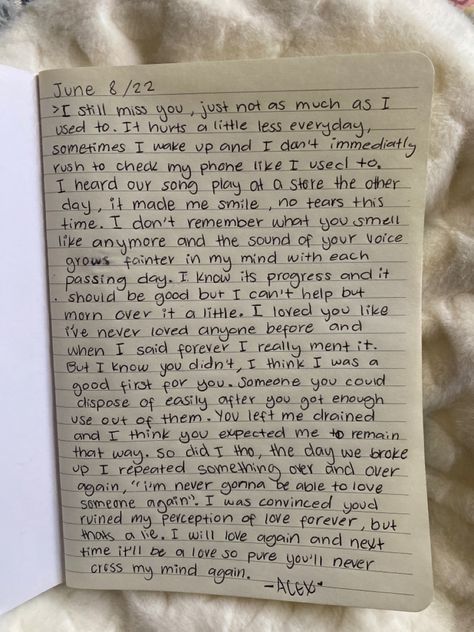 June 8/22
>I still miss you, just not as much as I
used to. It hurts a little less everyday,
sometimes I wake up and I don't immediatly
rush to check my phone like I used to.
I heard our song play at a store the other
day, it made me smile, no tears this
time. I don't remember what you smell
like anymore and the sound of your voice
grows fainter in my mind with each
passing day. I know its progress and it
should be good but I can't help but
morn over it a little. I loved you like
i've never loved anyone before and
when I said forever I really ment it.
But I know you didn't, I think I was a
good first for you. Someone you could
dispose of easily after you got enough
use out of them. You left me drained
and I think you expected me to remain
that way. So did I tho, the day we broke
up I repeated something over and over
again, "i'm never gonna be able to love
someone again". I was convinced youd
ruined my perception of love forever, but
thats a lie. I will love again and next
time it'll be a love so pure you'll never
cross my mind again.